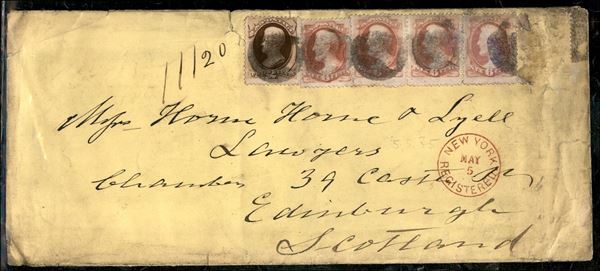 11120
Messrs Horne Horne & Lyell
Lawyers
Chamber 39 Castle St
Edinburgh
Scotland
NEW YORK
MAY
5
REGISTERED